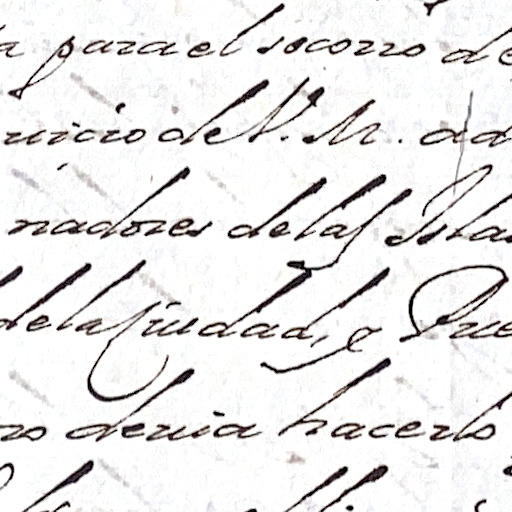 a para el socorro de
uicio de V. M. ad
nadores de las Islas
de la Ciudad, e Pue
ro deuia hacerlo